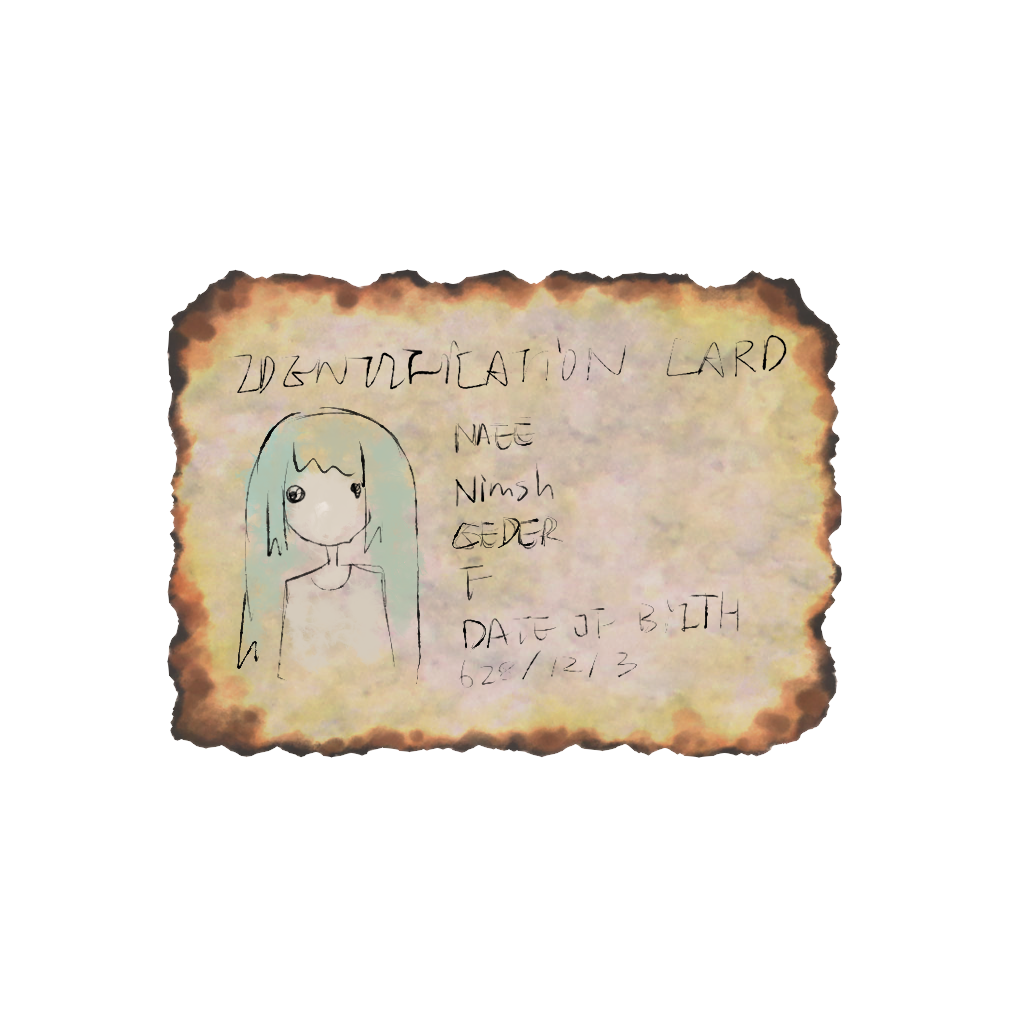 IDENTIFICATION CARD
NAEE
Nimsh
GEDER
F
DATE OF BIITH
628/12/3